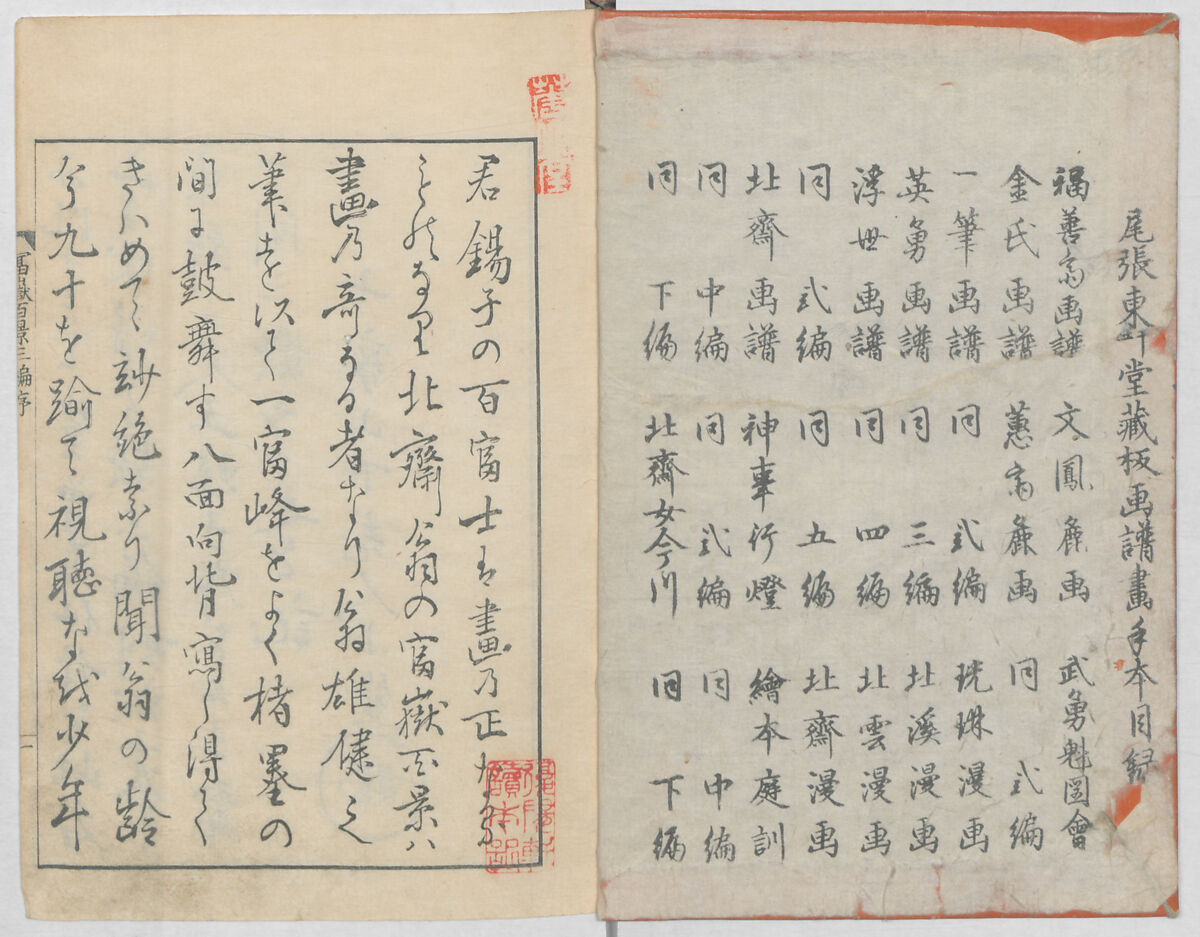 尾張東壁堂藏板画譜畫手本目録
福善斎画譜 文鳳麁画 武勇魁図會
金氏画譜 蕙斎麁画 同 弐編
一筆画譜 同 弐編 琺琳漫画
英勇画譜 同 三編 北溪漫画
浮世画譜 同 四編 北雲漫画
同 弐編 同 五編 北齋漫画
北齋画譜 神事行燈 繪本庭訓
同 中編 同 弐編 同 中編
同 下編 北齋女今川 同 下編
君錫子の百富士は畫乃正
北齋翁の富嶽百景ハ
畫乃奇なる者なり翁雄健之
筆を以て一富峰をよく楮墨の
間に鼓舞す八面向背寫し得て
きハめて妙絶なり聞翁の齢
今九十を踰て視聴なを少年
富嶽百景三編序
一